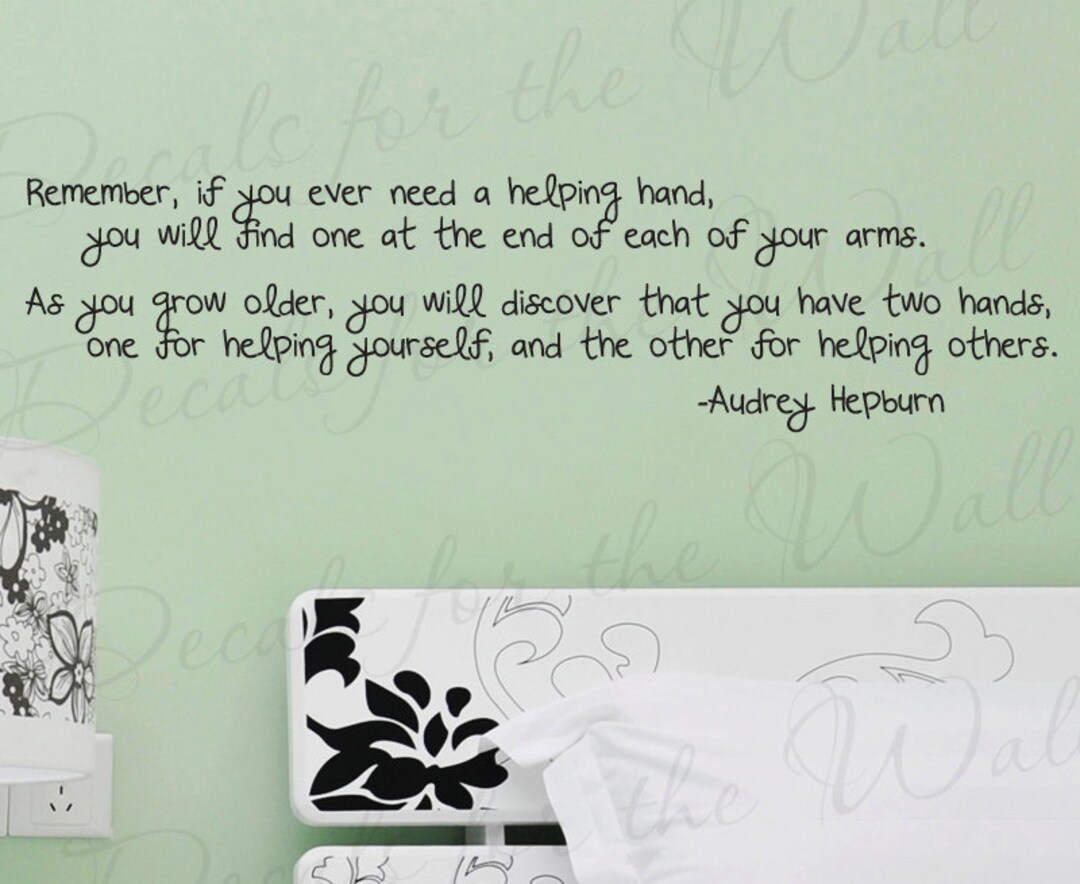 Decals for the Wall
Remember, if you ever need a helping hand,
you will find one at the end of each of your arms.
Decals for the Wall
As you grow older, you will discover that you have two hands,
one for helping yourself, and the other for helping others.
-Audrey Hepburn
Decals for the Wall
Decals for the Wall